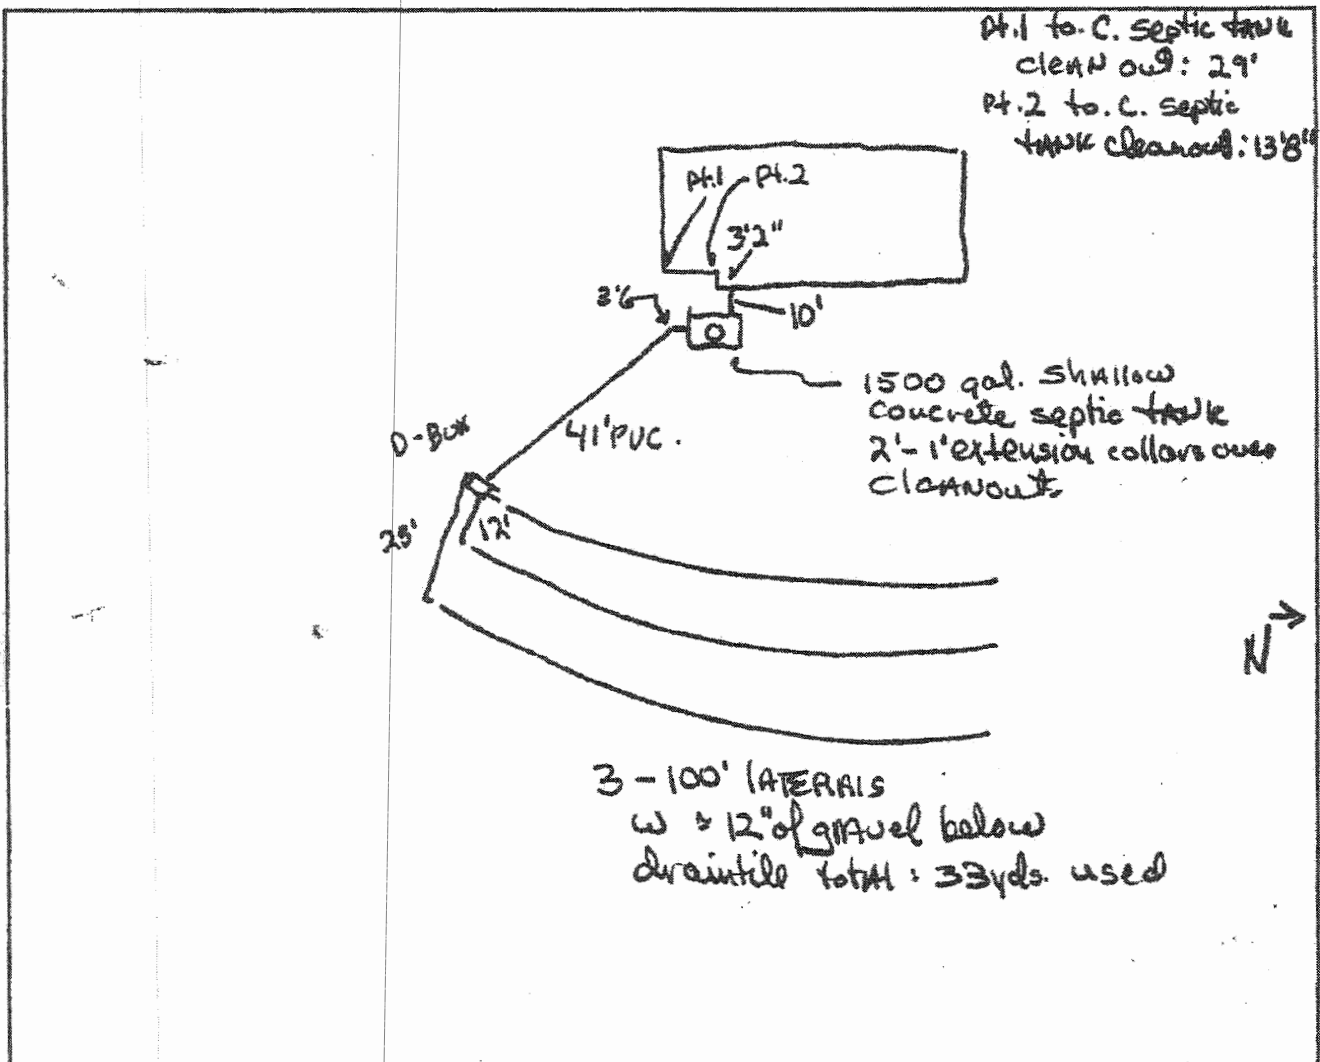 Pt.1 to C. septic tank
clean out: 29'
Pt.2 to C. septic
tank cleanout: 13'8"
Pt.1
Pt.2
3'2"
3'6
10'
1500 gal. Shallow
Concrete septic tank
2'- 1' extension collars over
cleanouts
D-Box
41' PVC.
25'
12'
N
3 - 100' laterals
w 12" of gravel below
draintile total: 33yds. used